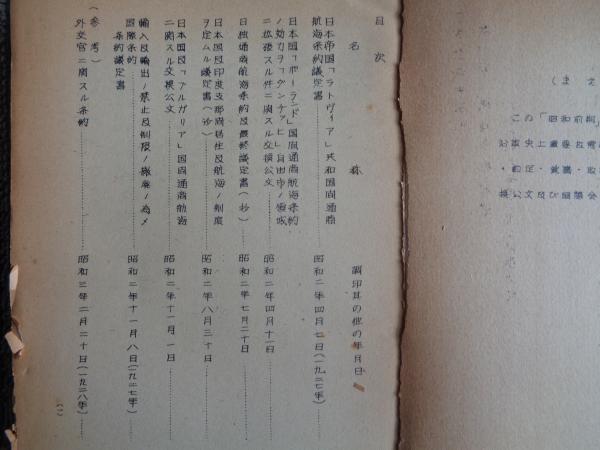 (まえ
この「昭和前期
目次
名称
調印其の他の年月日
日本帝国「ラトヴィア」共和国間通商
航海条約議定書……昭和二年四月七日(一九二七年)
日本国「ポーランド」国間通商航海条約
ノ効力ヲ「ダンチッヒ」自由市ノ領域
ニ拡張スル件ニ関スル交換公文……昭和二年四月十一日
日独通商航海条約及最終議定書(抄)……昭和二年七月二十日
日本国及印度支那間居住及航海ノ制度
ヲ定ムル議定書(抄)……昭和二年八月三十日
日本国及「ブルガリア」国間通商航海
ニ関スル交換公文……昭和二年十一月一日
輸入及輸出ノ禁止及制限ノ撤廃ノ為メ
国際条約……昭和二年十一月八日(一九二七年)
条約議定書
(参考)
外交官ニ関スル条約……昭和三年二月二十日(一九二八年)
(一)